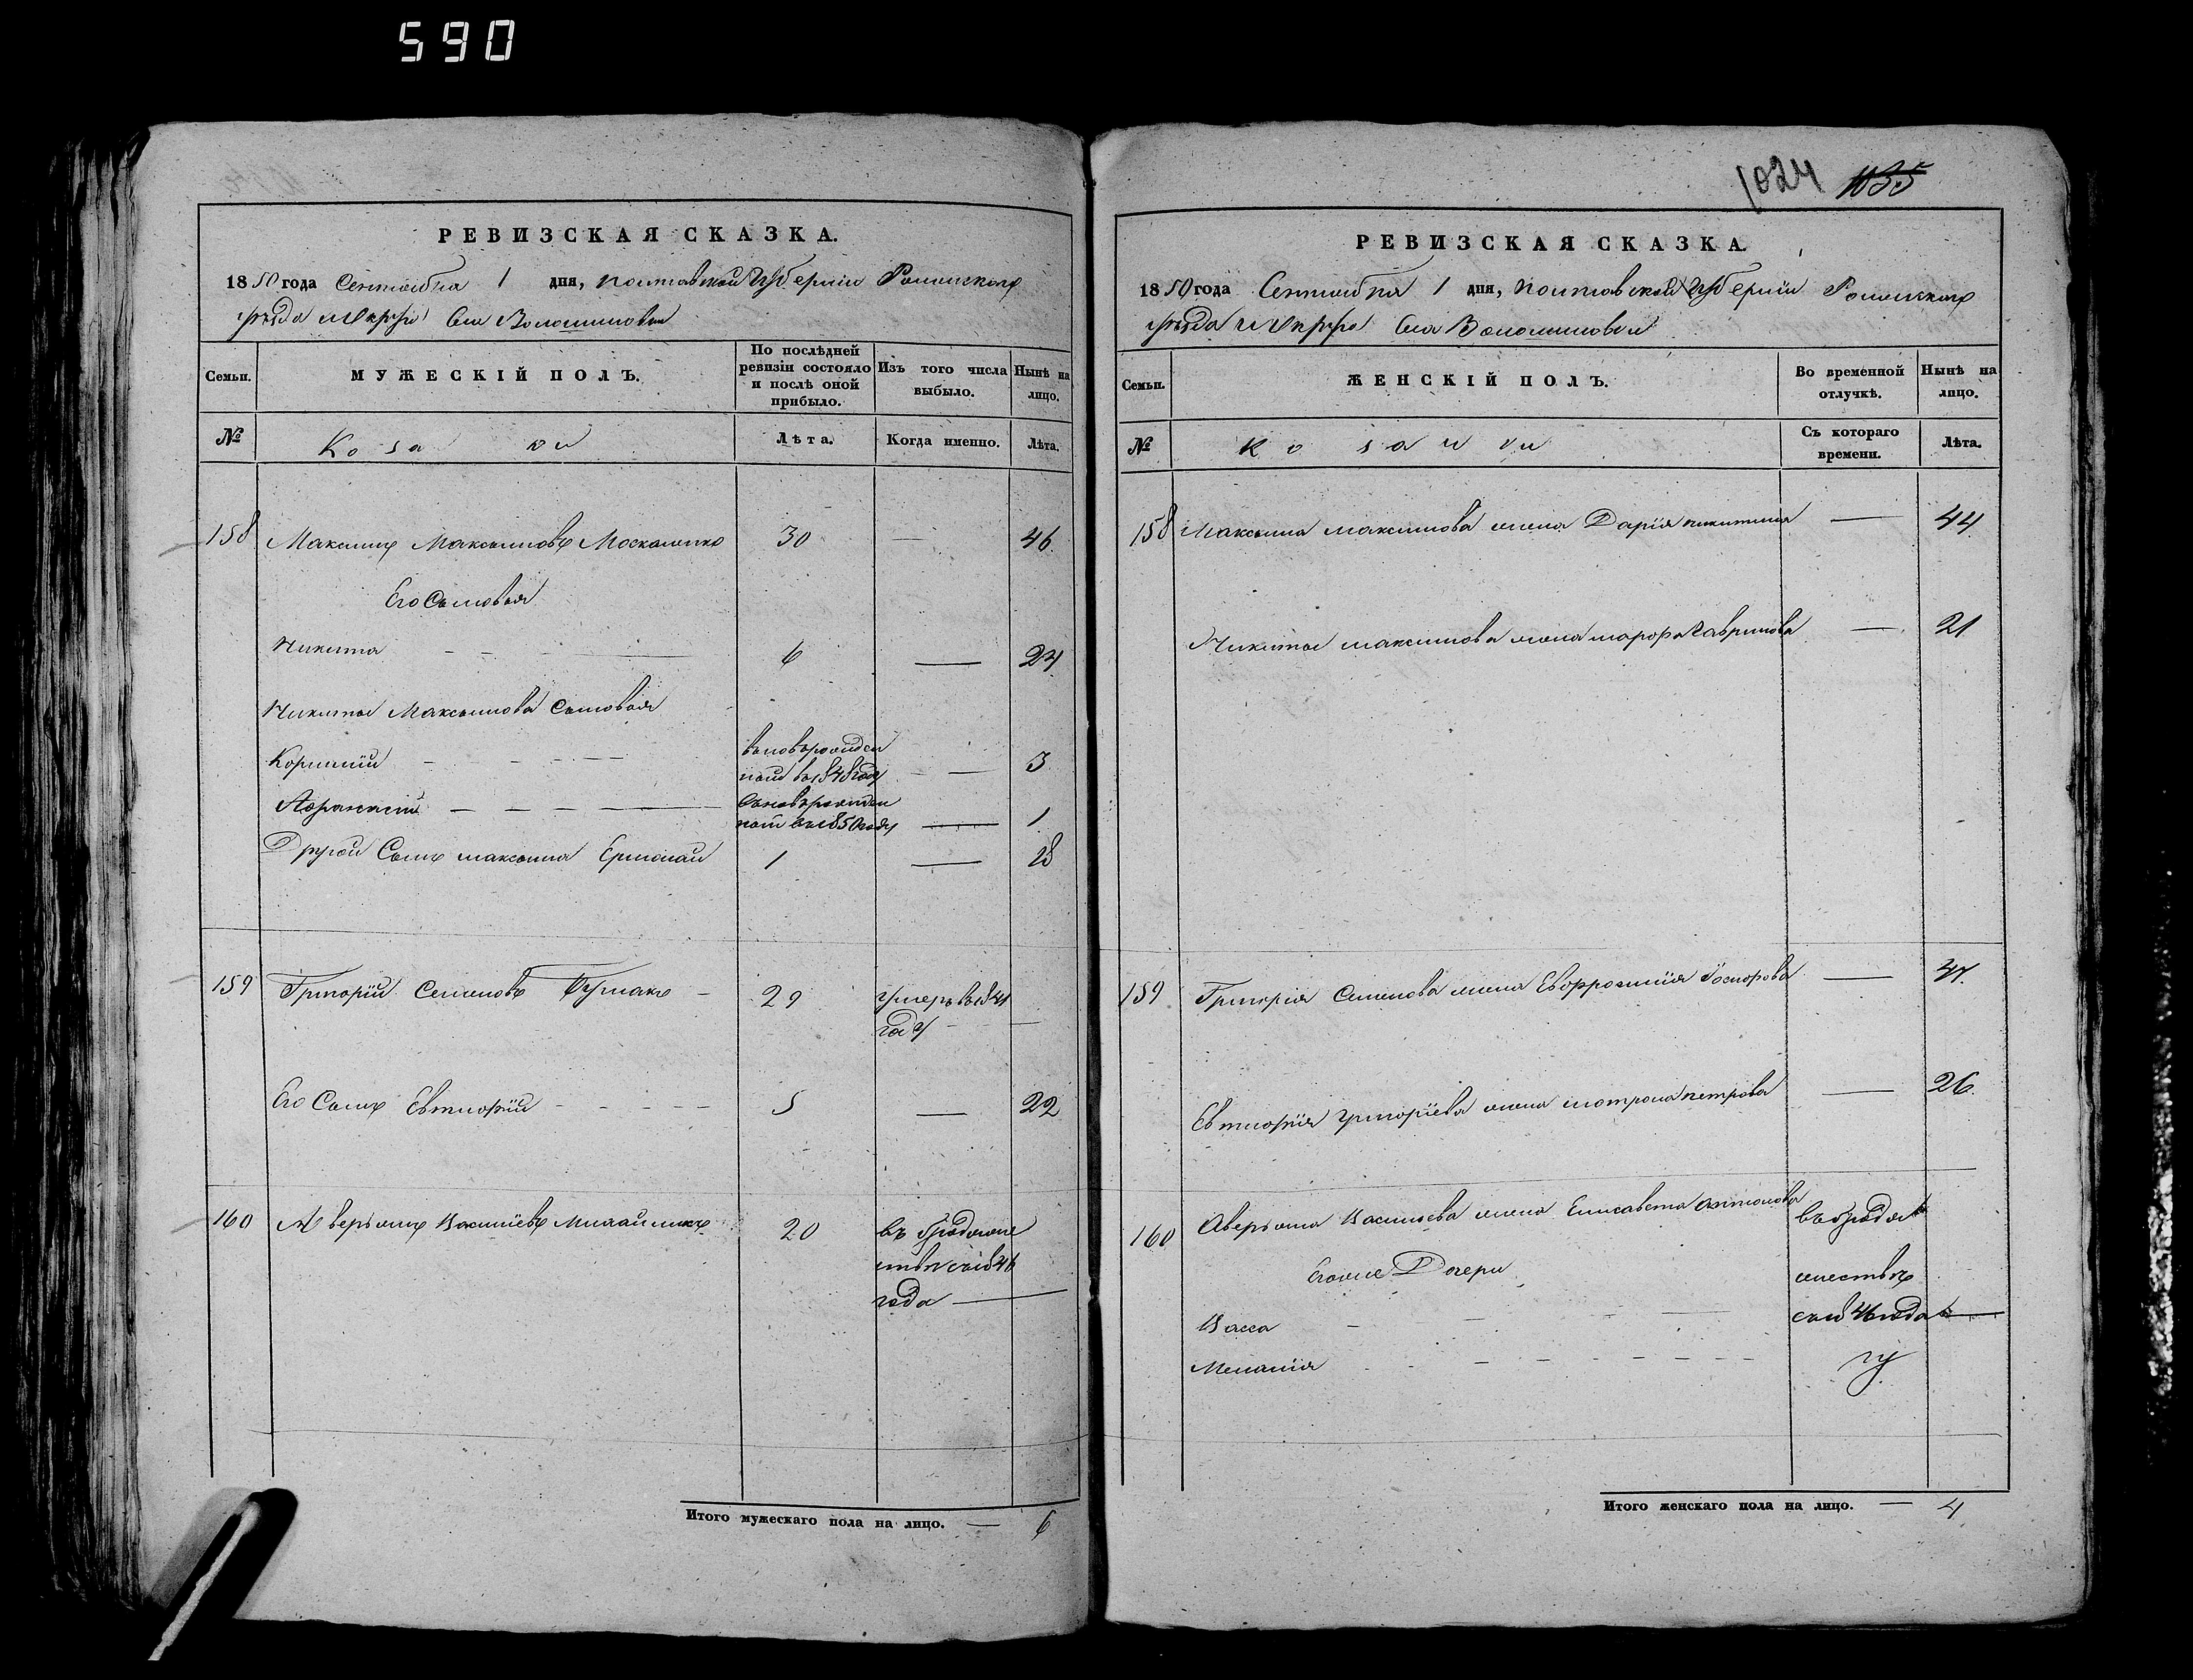 590
РЕВИЗСКАЯ СКАЗКА.
1850 года Сентября 1 дня, Полтавской Губернии Роменского
уезда и округа Села Волошиновки
Семьи.
МУЖЕСКІЙ ПОЛЪ.
По послѣдней ревизіи состояло и послѣ оной прибыло.
Изъ того числа выбыло.
Нынѣ на лицо.
№
Козаки
Лѣта.
Когда именно.
Лѣта.
158 Максимъ Максимовъ Москаленко 30 — 46.
Его Сыновья
Никита 6 — 24
Никиты Максимова Сыновья
Корнилій вновь рожден
ный въ 1848 году — 3
Афанасій вновь рожден
ный въ 1850 году — 1
Другой Сынъ Максима Ермолай 1 — 18
159 Григорій Семеновъ 29 умеръ въ 1841
году —
Его Сынъ Евтихій 5 — 22
160 Аверьянъ Васильевъ 20 въ бродяже
ствѣ съ 1846
года —
Итого мужескаго пола на лицо. — 6
1024 1035
РЕВИЗСКАЯ СКАЗКА.
1850 года Сентября 1 дня, Полтавской Губерніи Роменского
уезда и округа Села Волошиновки
Семьи.
ЖЕНСКІЙ ПОЛЪ.
Во временной отлучкѣ.
Нынѣ на лицо.
№
Козачки
Съ котораго времени.
Лѣта.
158 Максима Максимова жена Дарія Никитина — 44.
Никиты Максимова жена Марфа Гаврилова — 21
159 Григорія Семенова жена Евфросинія — 47.
Евтихія Григорієва жена Мотрона Петрова — 26.
160 Аверьяна Васильева жена Елисавета Антонова въ бродя
жествѣ
Его же Дочери
Васса съ 1846 года —
Меланія
Итого женскаго пола на лицо. — 4